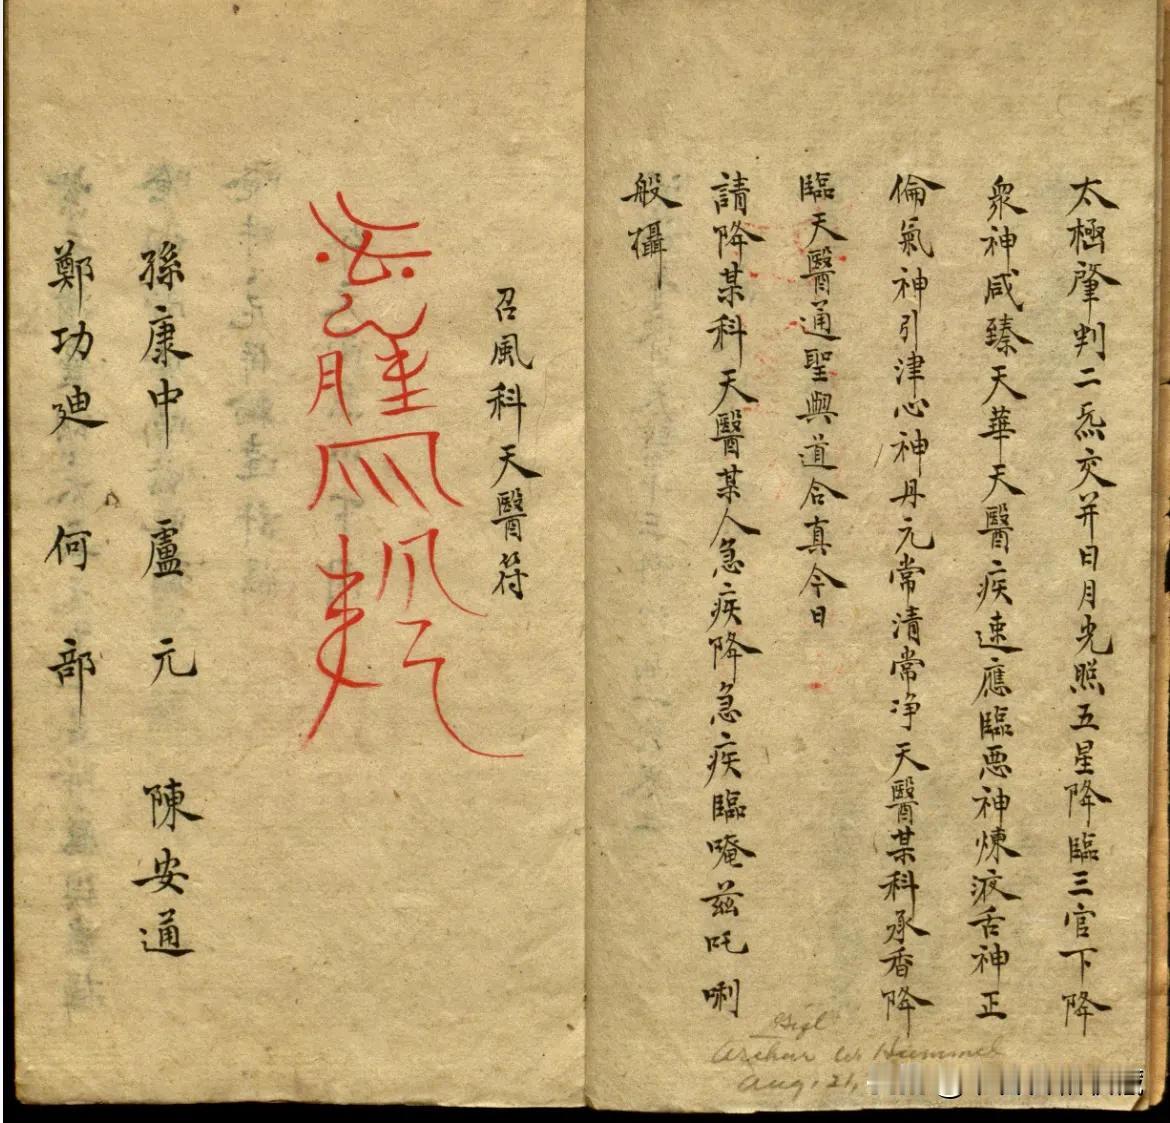 太極肇判二炁交并日月光照五星降臨三官下降
衆神咸臻天華天醫疾速應臨悪神煉液舌神正
倫氣神引津心神丹元常清常净天醫某科承香降
臨天醫通聖與道合真今日
請降某科天醫某人急疾降急疾臨唵茲吒唎
般攝
召風科天醫符
孫康中 盧元 陳安通
鄭功廸 何部
Gift
Arthur W. Hummel
Aug. 21,